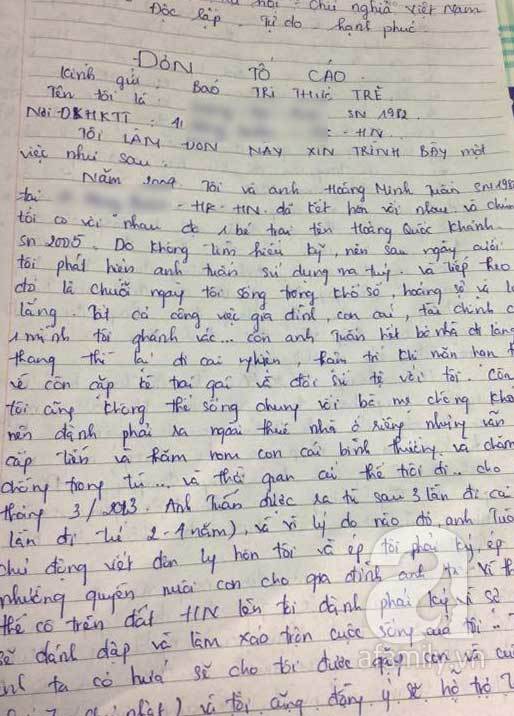 hội . Chủ nghĩa Việt Nam
Độc lập . Tự do . hạnh phúc
ĐƠN TỐ CÁO
Kính gửi : Báo TRI THỨC TRẺ
Tên tôi là SN 1982
Nơi ĐKHKTT : 11 : - HN
TÔI LÀM ĐƠN NÀY XIN TRÌNH BÀY một
việc như sau:
Năm 2004 Tôi và anh Hoàng Minh Tuấn SN 198
tại - HK - HN đã kết hôn với nhau và chún
tôi có với nhau đc 1 bé trai tên Hoàng Quốc Khánh
SN 2005. Do không tìm hiểu kỹ, nên sau ngày cưới
tôi phát hiện anh Tuấn sử dụng ma tuý. và tiếp theo
đó là chuỗi ngày tôi sống trong khổ sở, hoảng sợ và lo
lắng. tất cả công việc gia đình, con cái, tài chính c
1 mình tôi ghánh vác... còn anh Tuấn hết bỏ nhà đi lang
thang thì lại đi cai nghiện, thậm trí khi nào hơn
về còn cặp kè trai gái và đối sử tệ với tôi. Còn
tôi cũng không thể sống chung với bố mẹ chồng
nên đành phải ra ngoài thuê nhà ở riêng nhưng vẫn
cấp tiền và thăm nom con cái bình thường và chăm
chồng trong tù... và thời gian cứ thế trôi đi.. cho
tháng 3/2013. Anh Tuấn được ra tù sau 3 lần đi cai
lần đi từ 2-4 năm), và vì lý do nào đó, anh Tuấ
chủ động viết đơn ly hôn tôi và ép tôi phải ký, ép
nhường quyền nuôi con cho gia đình anh ta vì
thế cô trên đất HN lên tôi đành phải ký vì sợ
sẽ đánh đập và làm xáo trộn cuộc sống của tôi..
anh ta có hứa sẽ cho tôi được gặp con và cu
nhật) và tôi cũng đồng ý sẽ hỗ trợ
afamily.vn